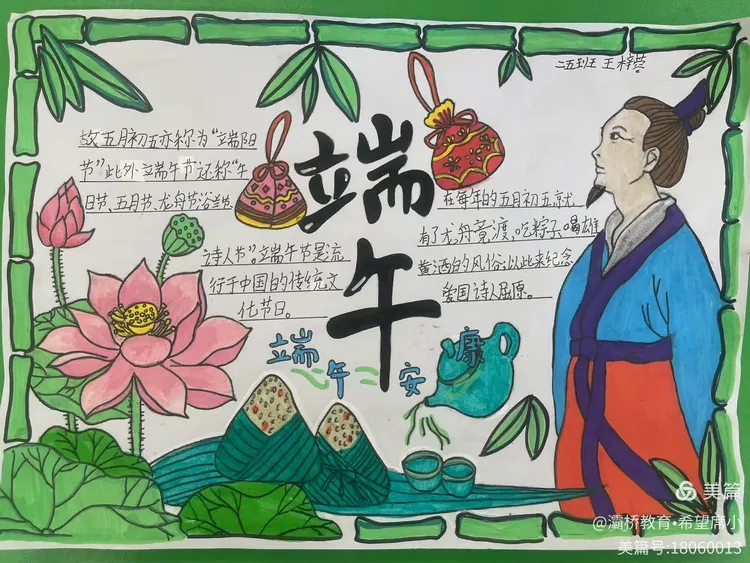 二五班 王梓萱
故五月初五亦称为“端阳
节”此外端午节还称“午
日节、五月节、龙舟节浴兰节
诗人节”。端午节是流
行于中国的传统文
化节日。
端午
在每年的五月初五京尤
有了龙舟竞渡、吃粽子、喝雄
黄酒的风俗;以此来纪念
爱国诗人屈原。
端午安康
美篇
@灞桥教育•希望席小
美篇号:18060013